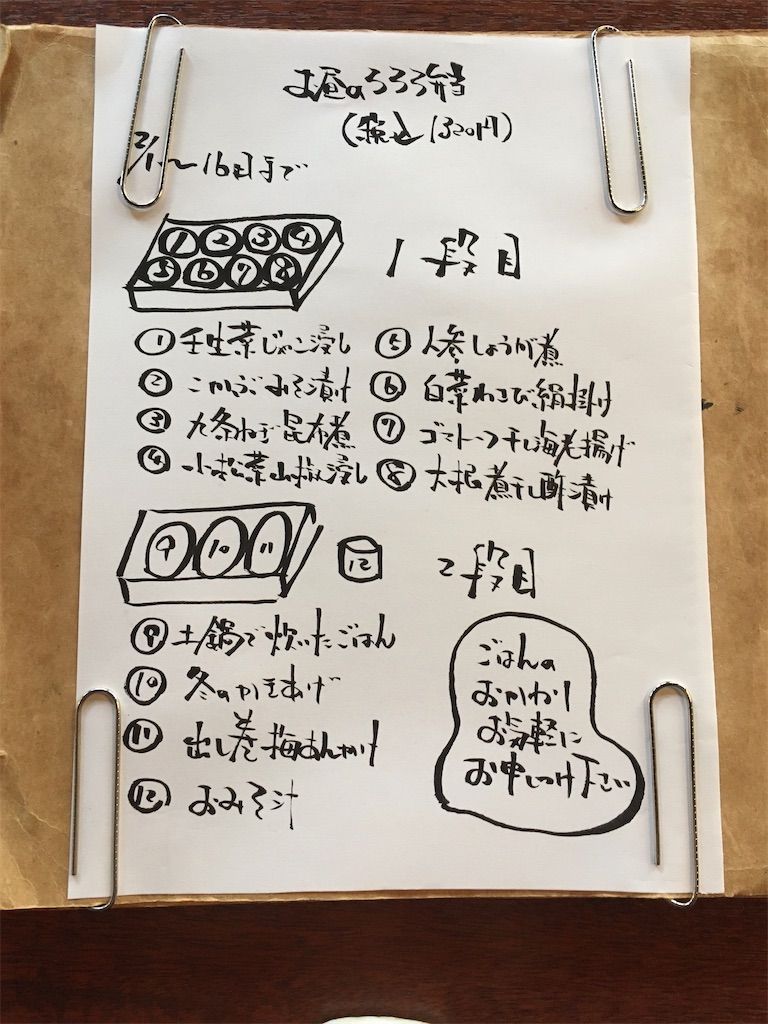 お昼のろろろ弁当
(税込1320円)
2/1〜16日まで
①②③④
⑤⑥⑦⑧
1段目
①壬生菜じゃこ浸し
②こかぶみそ漬け
③九条ねぎ昆布煮
④小松菜山椒浸し
⑤人参しょうが煮
⑥白菜わさび絹掛け
⑦ゴマトーフ干し海老揚げ
⑧大根煮干し酢漬け
⑨⑩⑪
⑫
2段目
⑨土鍋で炊いたごはん
⑩冬のかきあげ
⑪出し巻梅あんかけ
⑫おみそ汁
ごはんの
おかわり
お気軽に
お申しつけ下さい